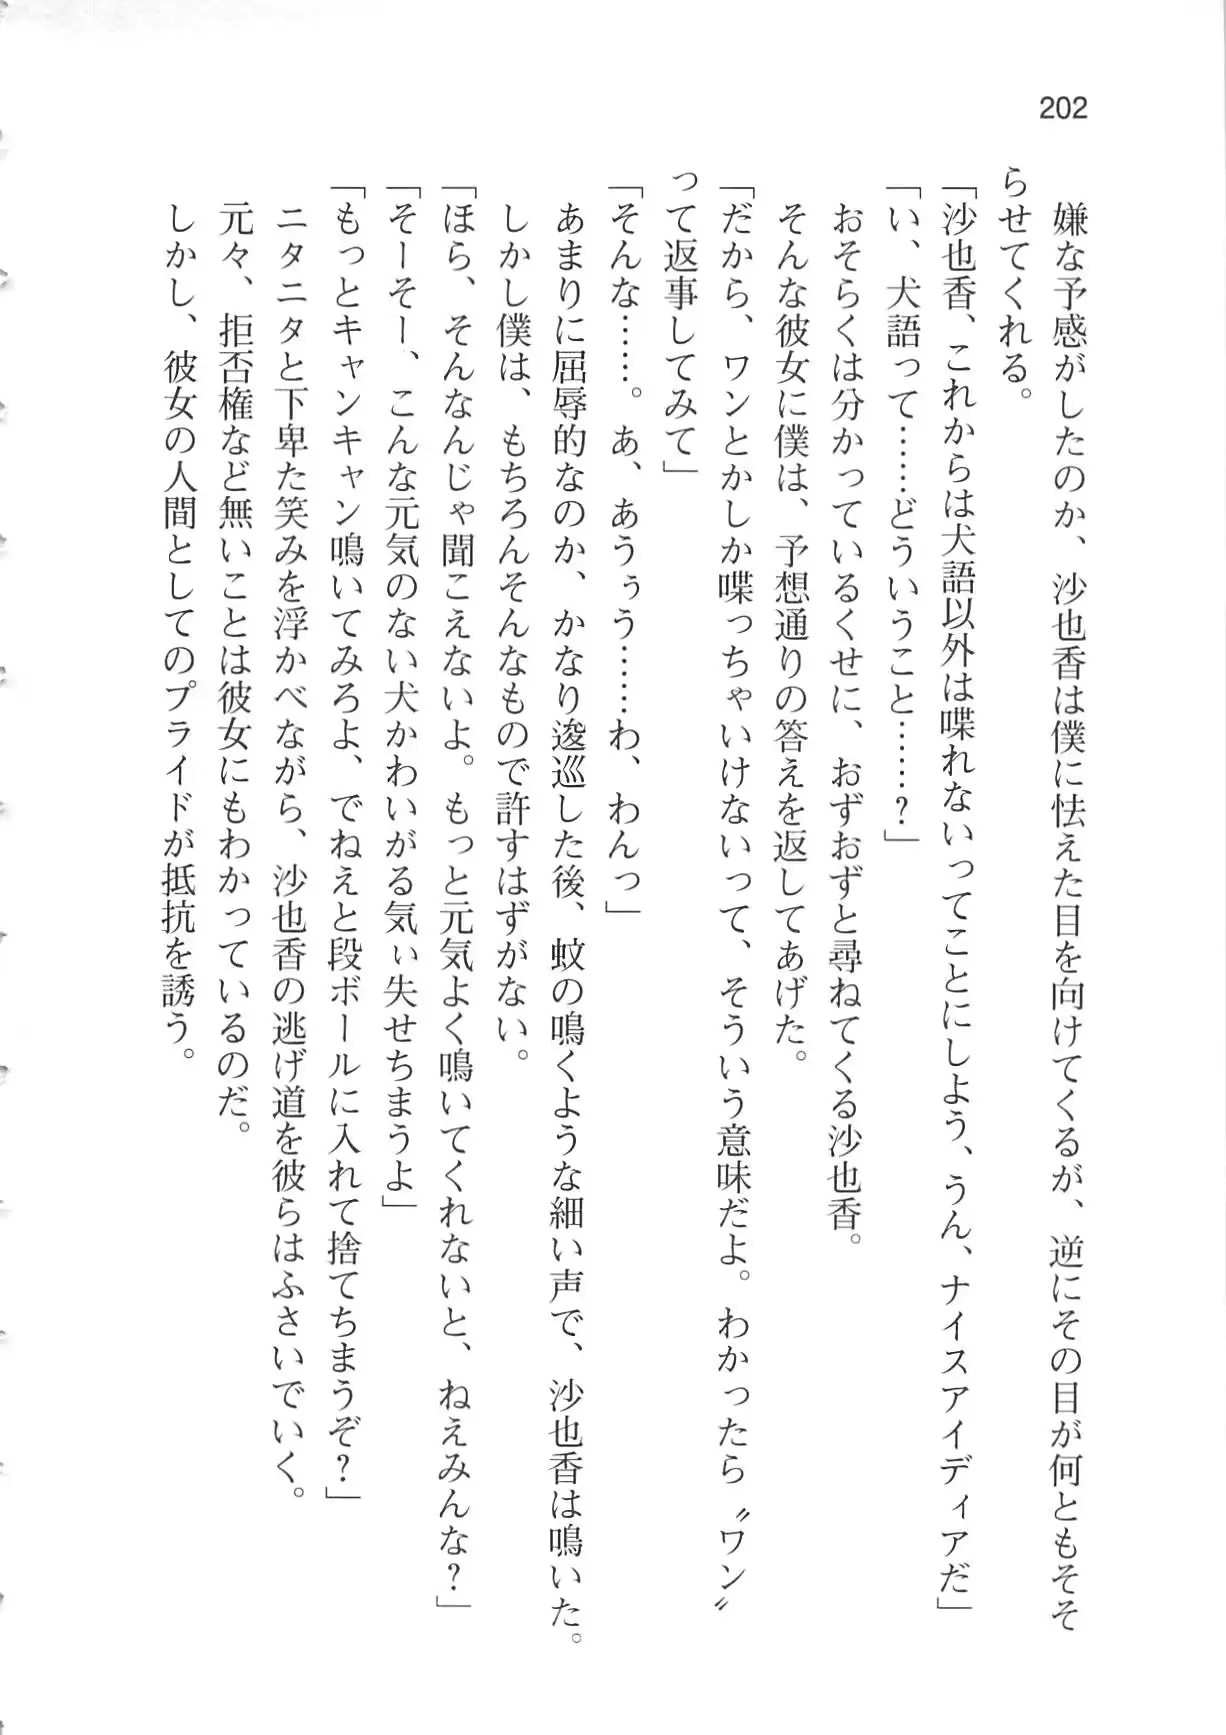 202
嫌な予感がしたのか、沙也香は僕に怯えた目を向けてくるが、逆にその目が何ともそそ
らせてくれる。
「沙也香、これからは犬語以外は喋れないってことにしよう、うん、ナイスアイディアだ」
「い、犬語って……どういうこと……？」
おそらくは分かっているくせに、おずおずと尋ねてくる沙也香。
そんな彼女に僕は、予想通りの答えを返してあげた。
「だから、ワンとかしか喋っちゃいけないって、そういう意味だよ。わかったら〝ワン〟
って返事してみて」
「そんな……。あ、あうぅう……わ、わんっ」
あまりに屈辱的なのか、かなり逡巡した後、蚊の鳴くような細い声で、沙也香は鳴いた。
しかし僕は、もちろんそんなもので許すはずがない。
「ほら、そんなんじゃ聞こえないよ。もっと元気よく鳴いてくれないと、ねえみんな？」
「そーそー、こんな元気のない犬かわいがる気ぃ失せちまうよ」
「もっとキャンキャン鳴いてみろよ、でねえと段ボールに入れて捨てちまうぞ？」
ニタニタと下卑た笑みを浮かべながら、沙也香の逃げ道を彼らはふさいでいく。
元々、拒否権など無いことは彼女にもわかっているのだ。
しかし、彼女の人間としてのプライドが抵抗を誘う。